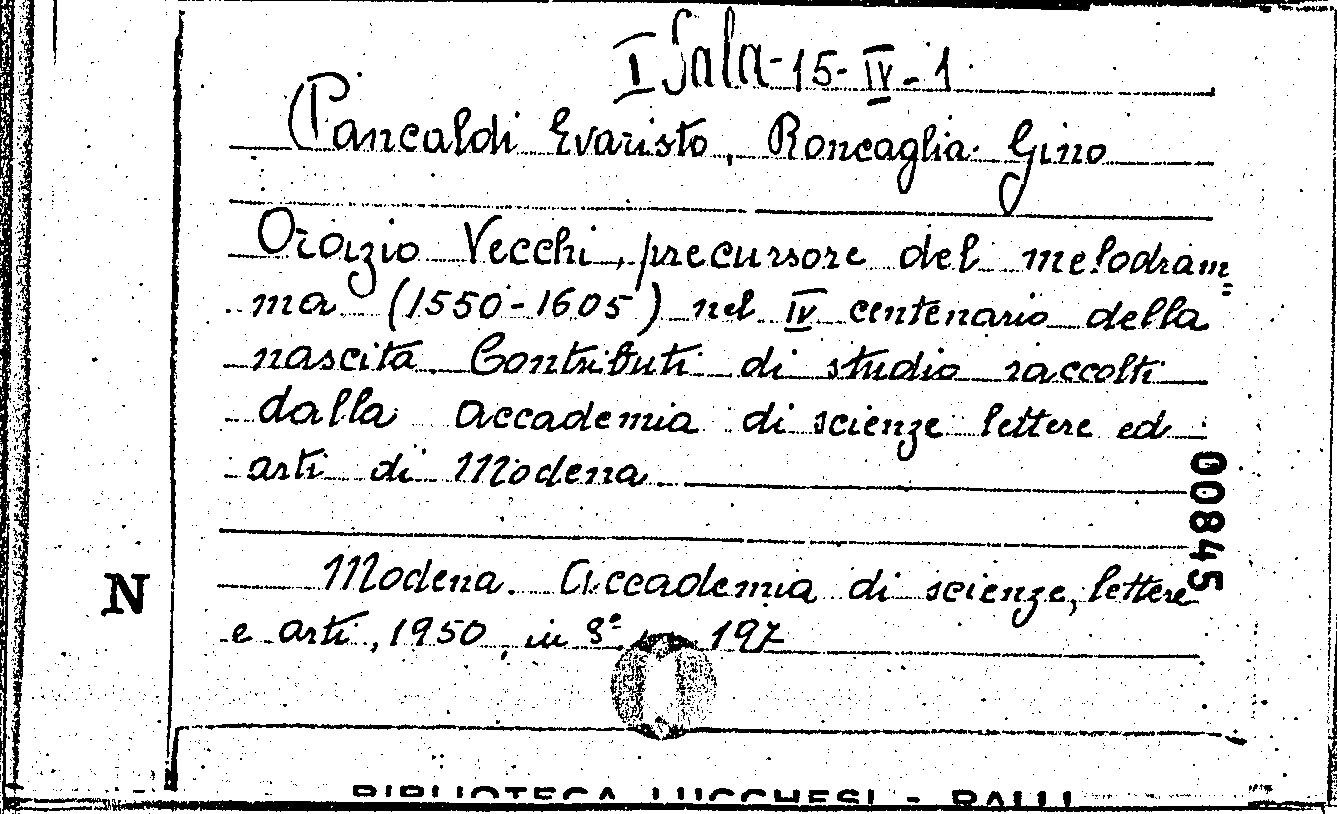 I Sala-15-IV-1
(Pancaldi Evaristo, Roncaglia Gino
Orazio Vecchi, precursore del melodram=
ma (1550-1605) nel IV centenario della
nascita. Contributi di studio raccolti
dalla Accademia di scienze lettere ed
arti di Modena
00845
Modena. Accademia di scienze, lettere
N
e arti, 1950, in 8° 197
BIBLIOTECA LUCCHESI - PALLI